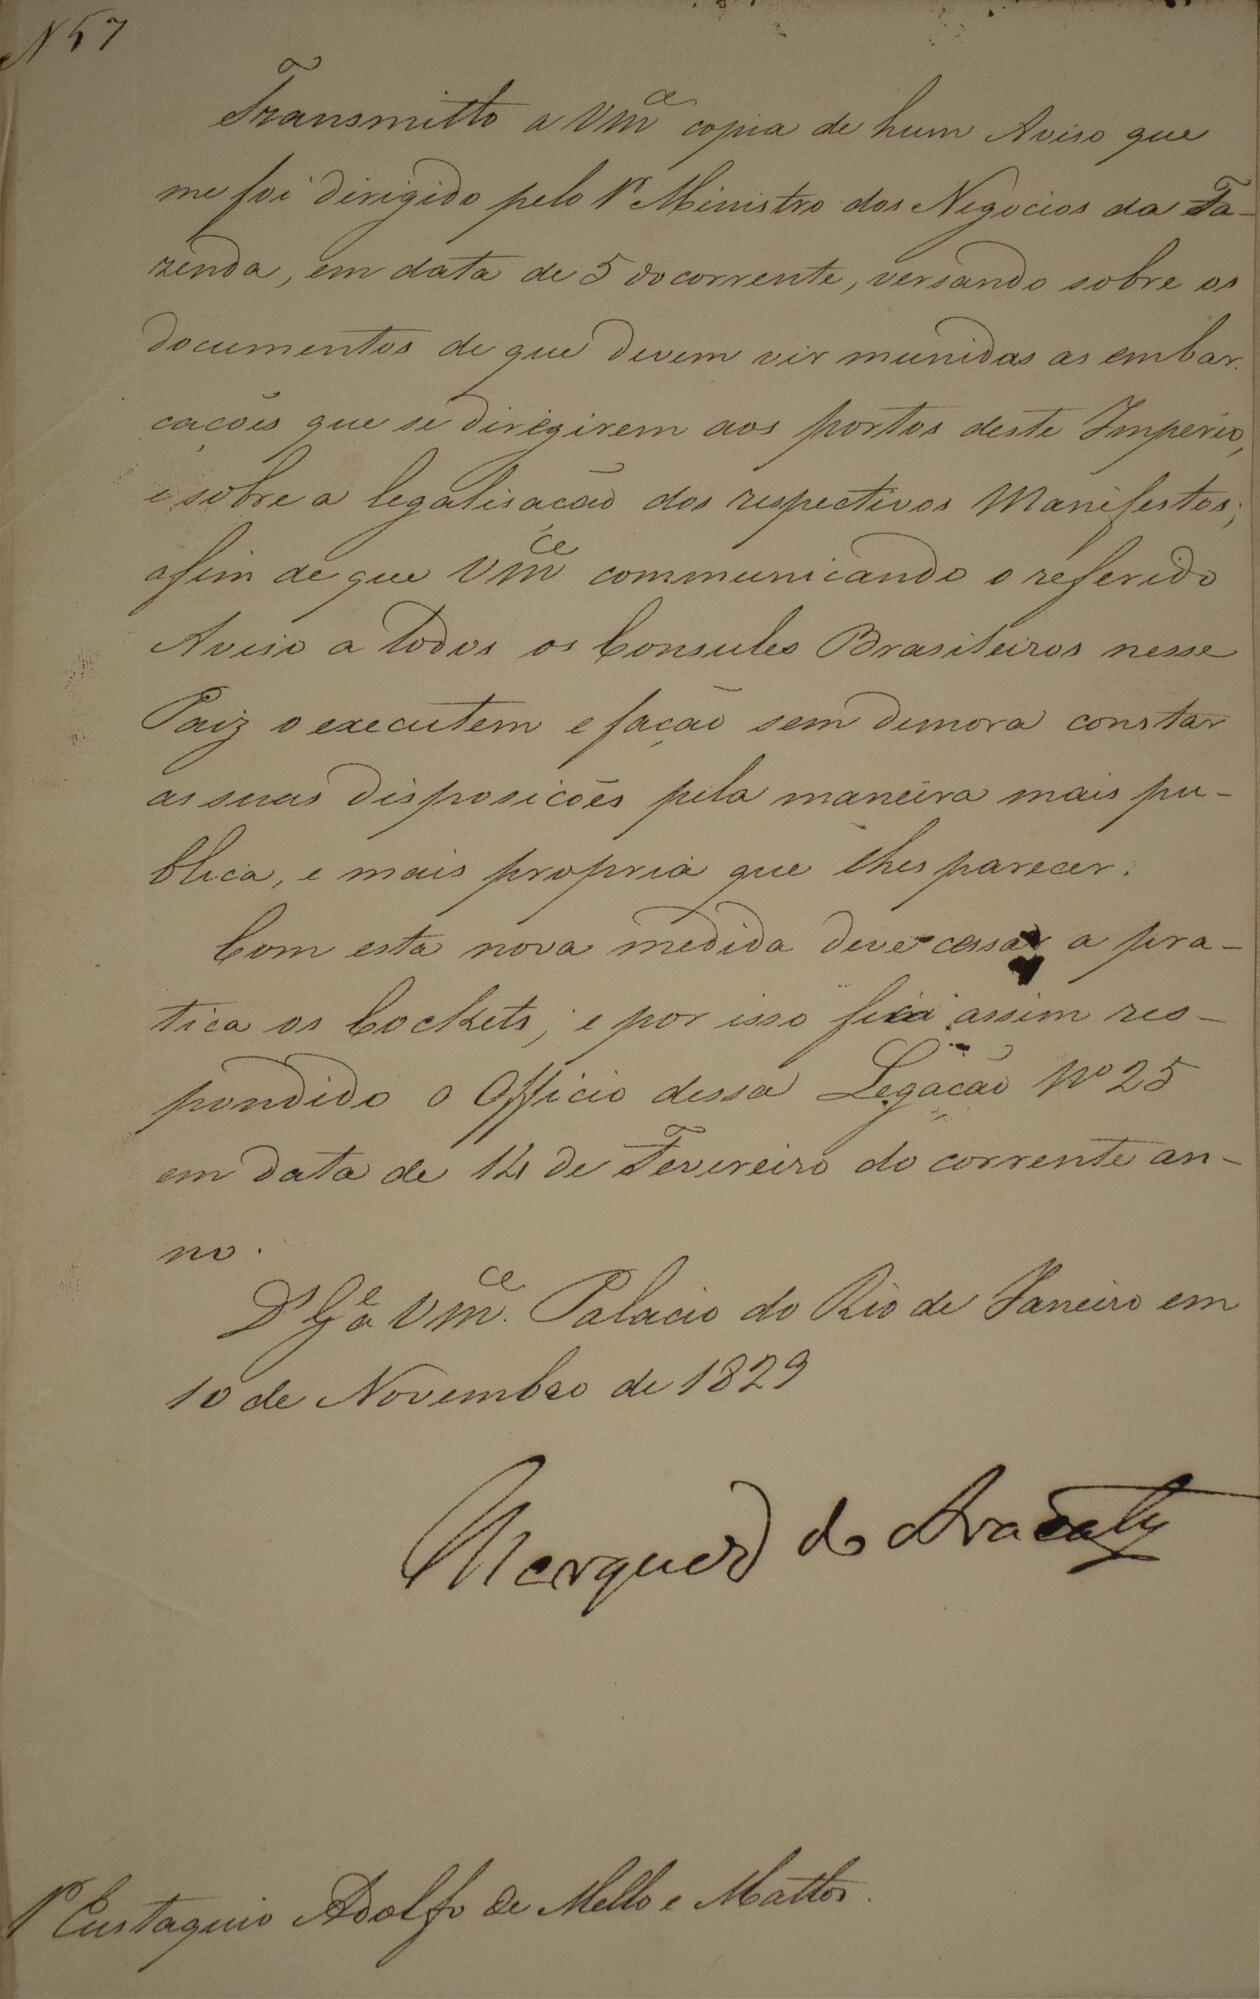 N 57
Transmitto a Vm.ce copia de hum Aviso que
me foi dirigido pelo Sr Ministro dos Negocios da Fa-
zenda, em data de 5 do corrente, versando sobre os
documentos de que devem vir munidas as embar-
cações que se dirigirem aos portos deste Imperio,
e sobre a legalisação dos respectivos Manifestos;
afim de que Vm.ce communicando o referido
Aviso a todos os Consules Brasileiros nesse
Paiz o executem e fação sem demora constar
as suas disposições pela maneira mais pu-
blica, e mais propria que lhes parecer.
Com esta nova medida deve cessar a pra-
tica os Cockets; e por isso fica assim res-
pondido o Officio dessa Legação No 25
em data de 14 de Fevereiro do corrente an-
no.
Ds Ge a Vm.ce Palacio do Rio de Janeiro em
10 de Novembro de 1829
Marquez do Aracaty
Sr Eustaquio Adolfo de Mello e Mattos.